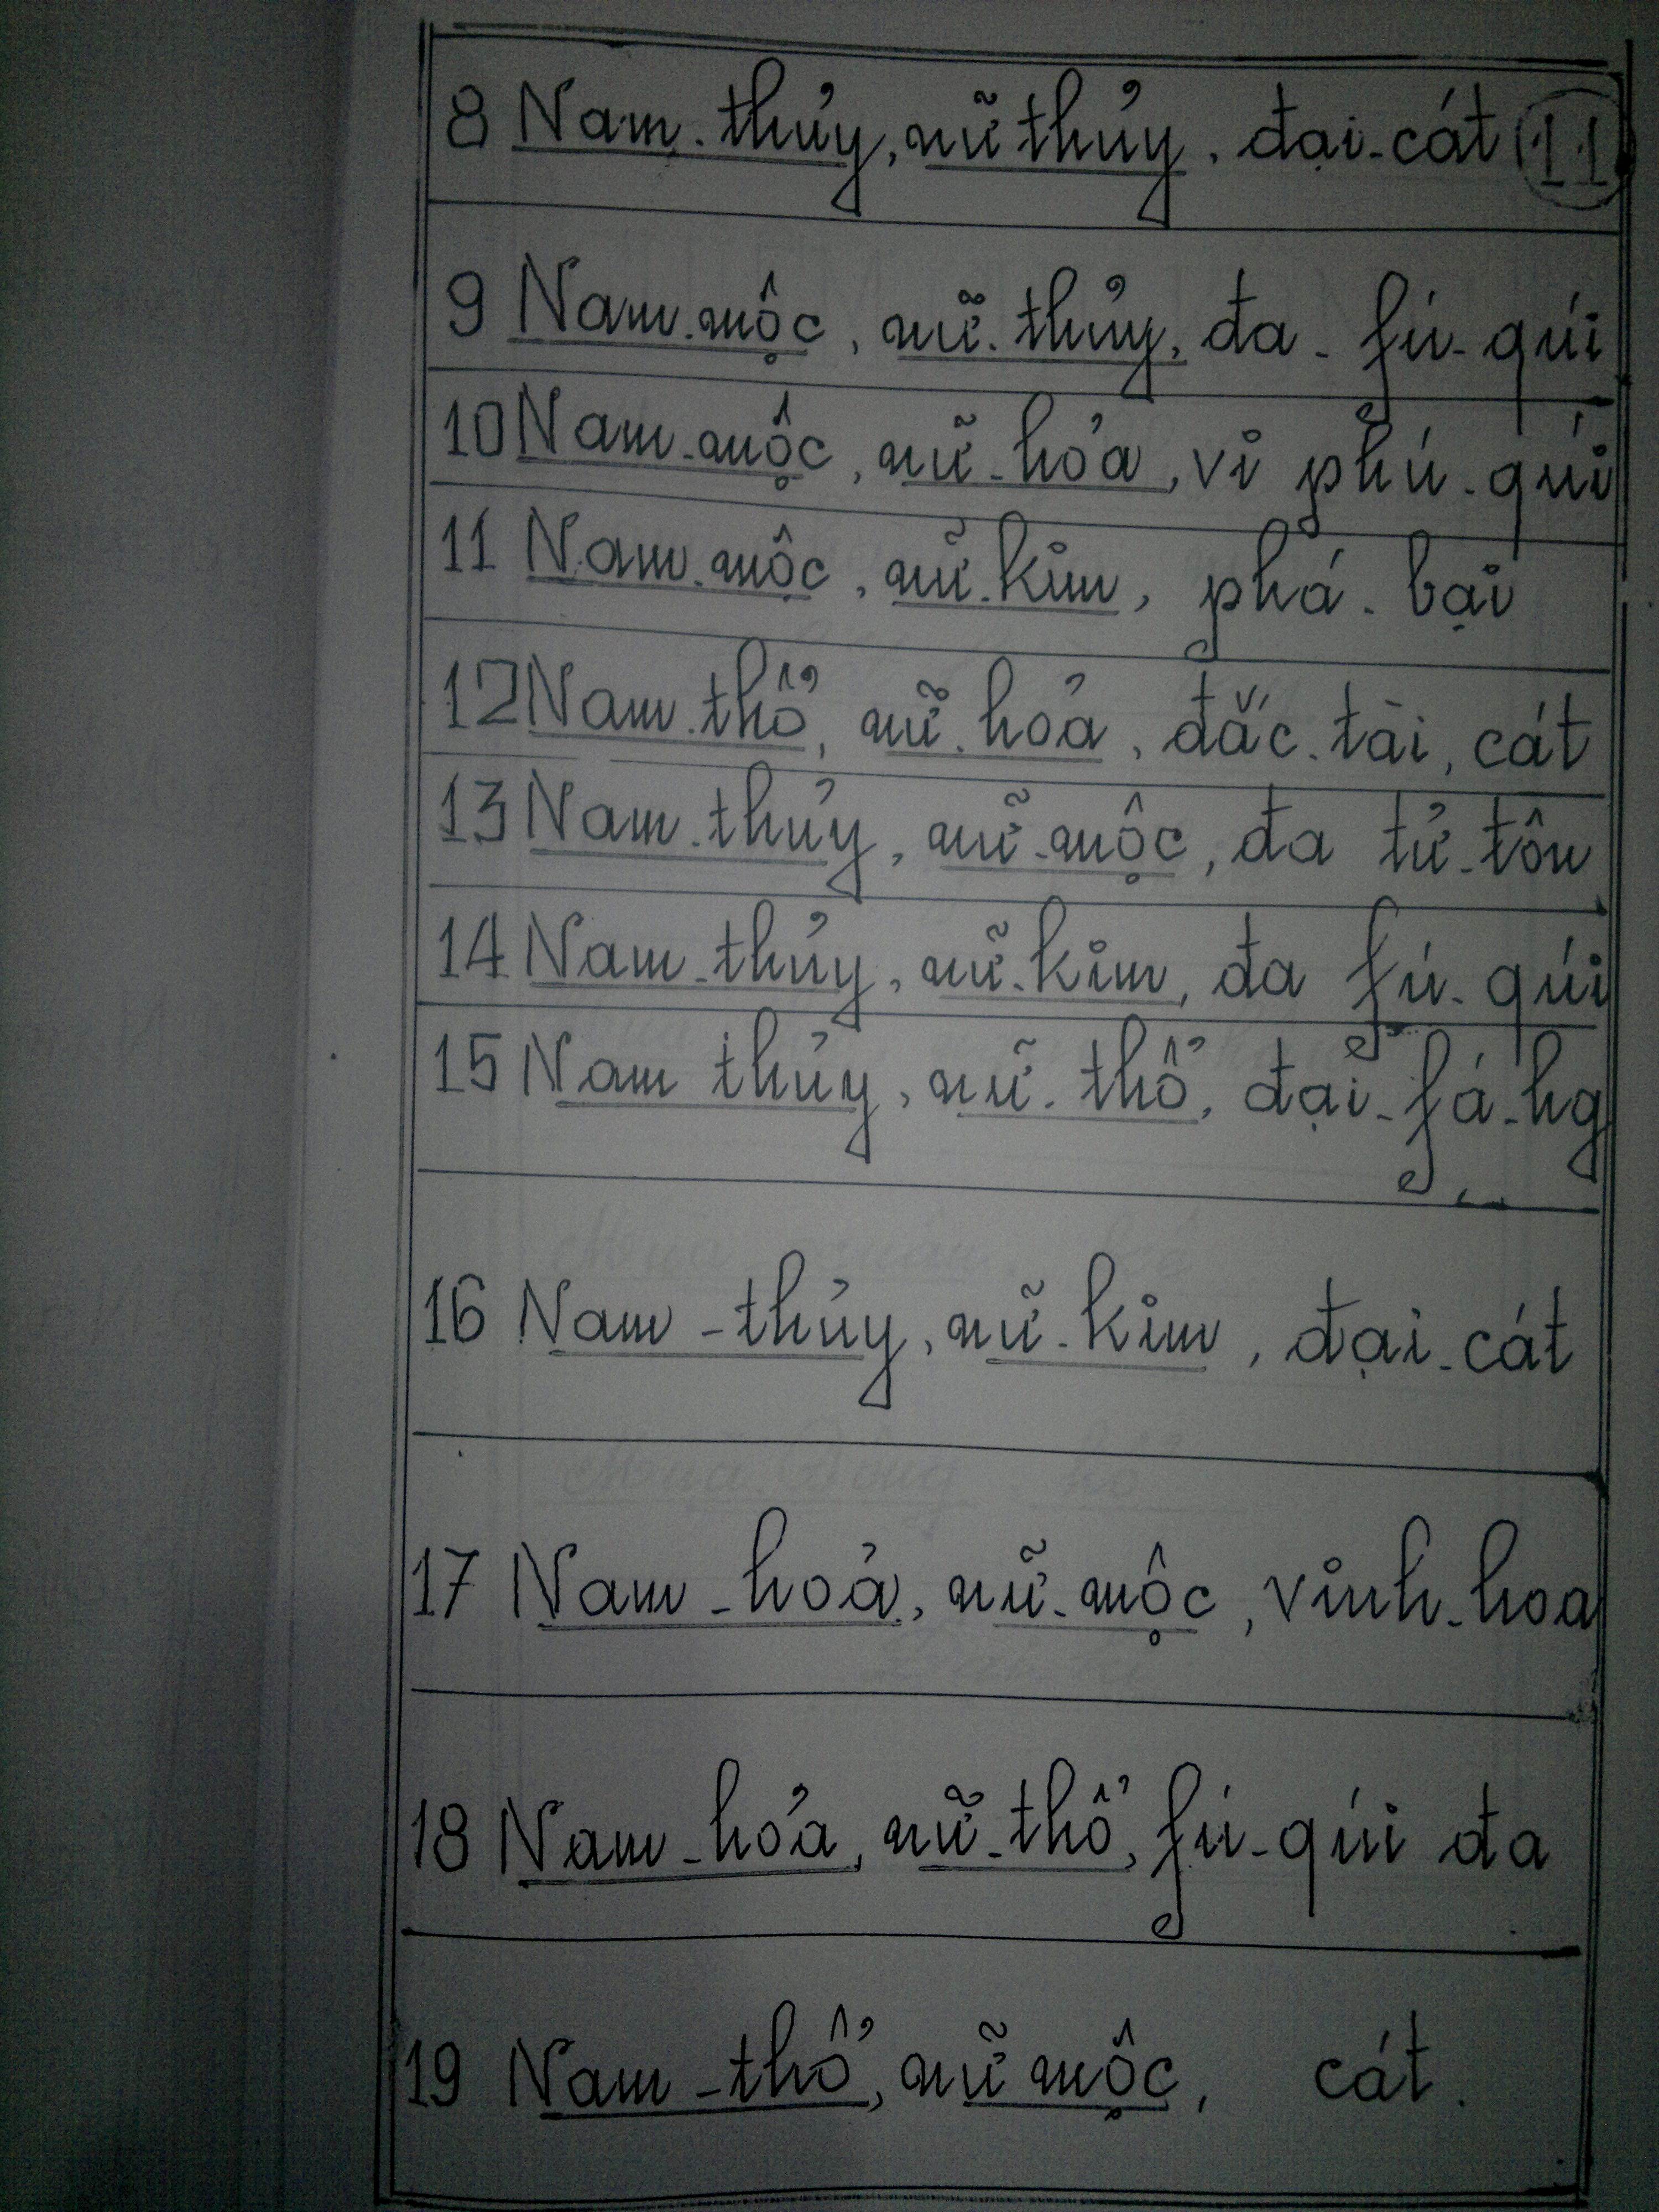 8 Nam. thủy, nữ thủy, đại-cát 11
9 Nam. mộc, nữ. thủy, đa - fú - qúi
10 Nam-mộc, nữ-hỏa, vi phú-qúi
11 Nam. mộc, nữ. kim, phá. bại
12 Nam. thổ, nữ. hỏa, đắc. tài, cát
13 Nam. thủy, nữ-mộc, đa tử-tôn
14 Nam-thủy, nữ. kim, đa fú-qúi
15 Nam thủy, nữ. thổ, đại-fá-hg
16 Nam-thủy, nữ-kim, đại-cát
17 Nam-hoả, nữ-mộc, vinh-hoa
18 Nam-hỏa, nữ-thổ, fú-qúi đa
19 Nam-thổ, nữ mộc, cát.